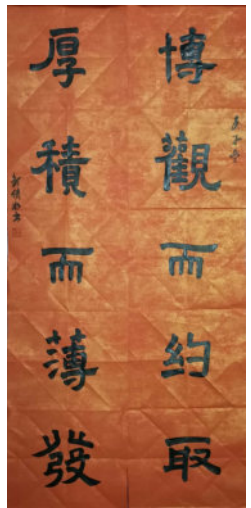 博觀而约取
厚積而薄發